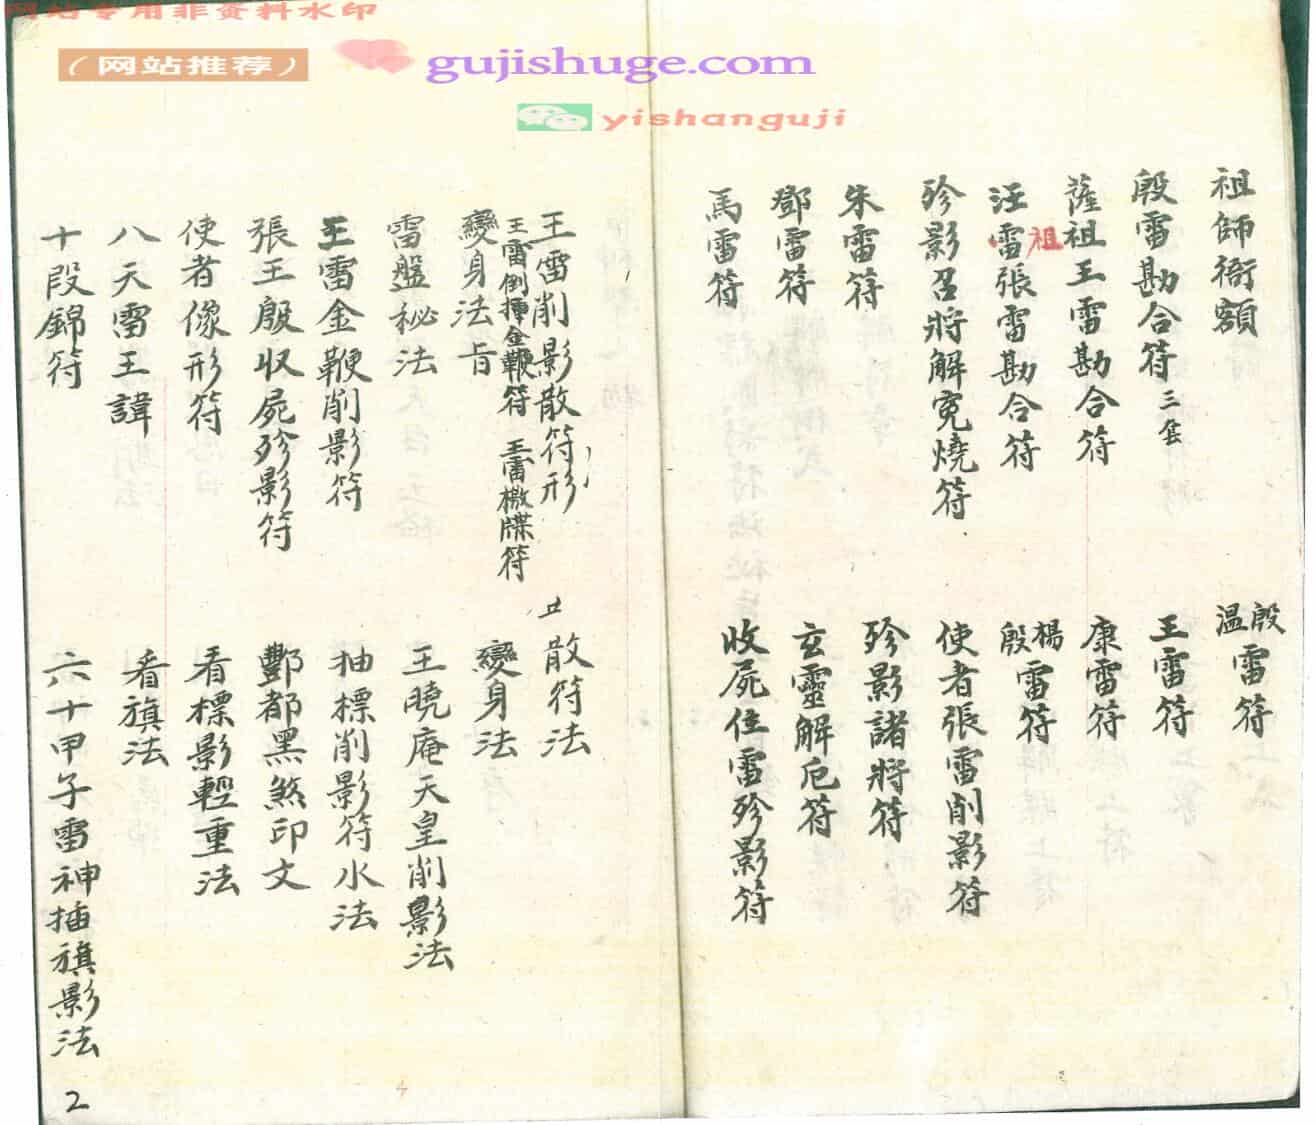 网站专用非资料水印
（网站推荐）
gujishuge.com
yishanguji
祖師衙額
殷溫雷符
殷雷勘合符三套
王雷符
薩祖王雷勘合符
康雷符
汪雷祖張雷勘合符
楊殷雷符
殄影召將解寃燒符
使者張雷削影符
朱雷符
殄影諸將符
鄧雷符
玄靈解厄符
馬雷符
收屍住雷殄影符
王雷削影散符形
散符法
王雷倒揮金鞭符 王雷檄牒符
變身法旨
變身法
雷盤秘法
王曉庵天皇削影法
王雷金鞭削影符
抽標削影符水法
張王殷收屍殄影符
酆都黑煞印文
使者像形符
看標影輕重法
八天雷王諱
看旗法
十段錦符
六十甲子雷神插旗影法
2